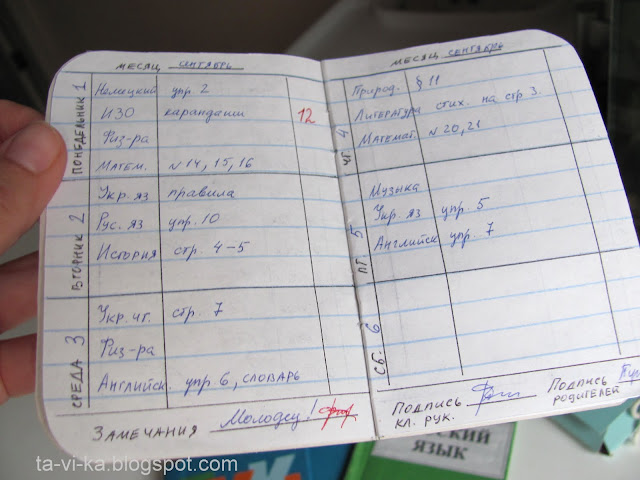 МЕСЯЦ СЕНТЯБРЬ
ПОНЕДЕЛЬНИК 1
Немецкий упр. 2
ИЗО карандаши 12
Физ-ра
Матем. №14, 15, 16
ВТОРНИК 2
Укр. яз правила
Рус. яз упр. 10
История стр. 4-5
СРЕДА 3
Укр. чт. стр. 7
Физ-ра
Английск. упр 6, словарь
ЗАМЕЧАНИЯ Молодец!
МЕСЯЦ СЕНТЯБРЬ
ЧТ. 4
Природ. § 11
Литература стих. на стр 3.
Математ. №20, 21
ПТ. 5
Музыка
Укр. яз упр. 5
Английск упр. 7
СБ. 6
ПОДПИСЬ КЛ. РУК.
ПОДПИСЬ РОДИТЕЛЕЙ
ЯЗЫК
ta-vi-ka.blogspot.com